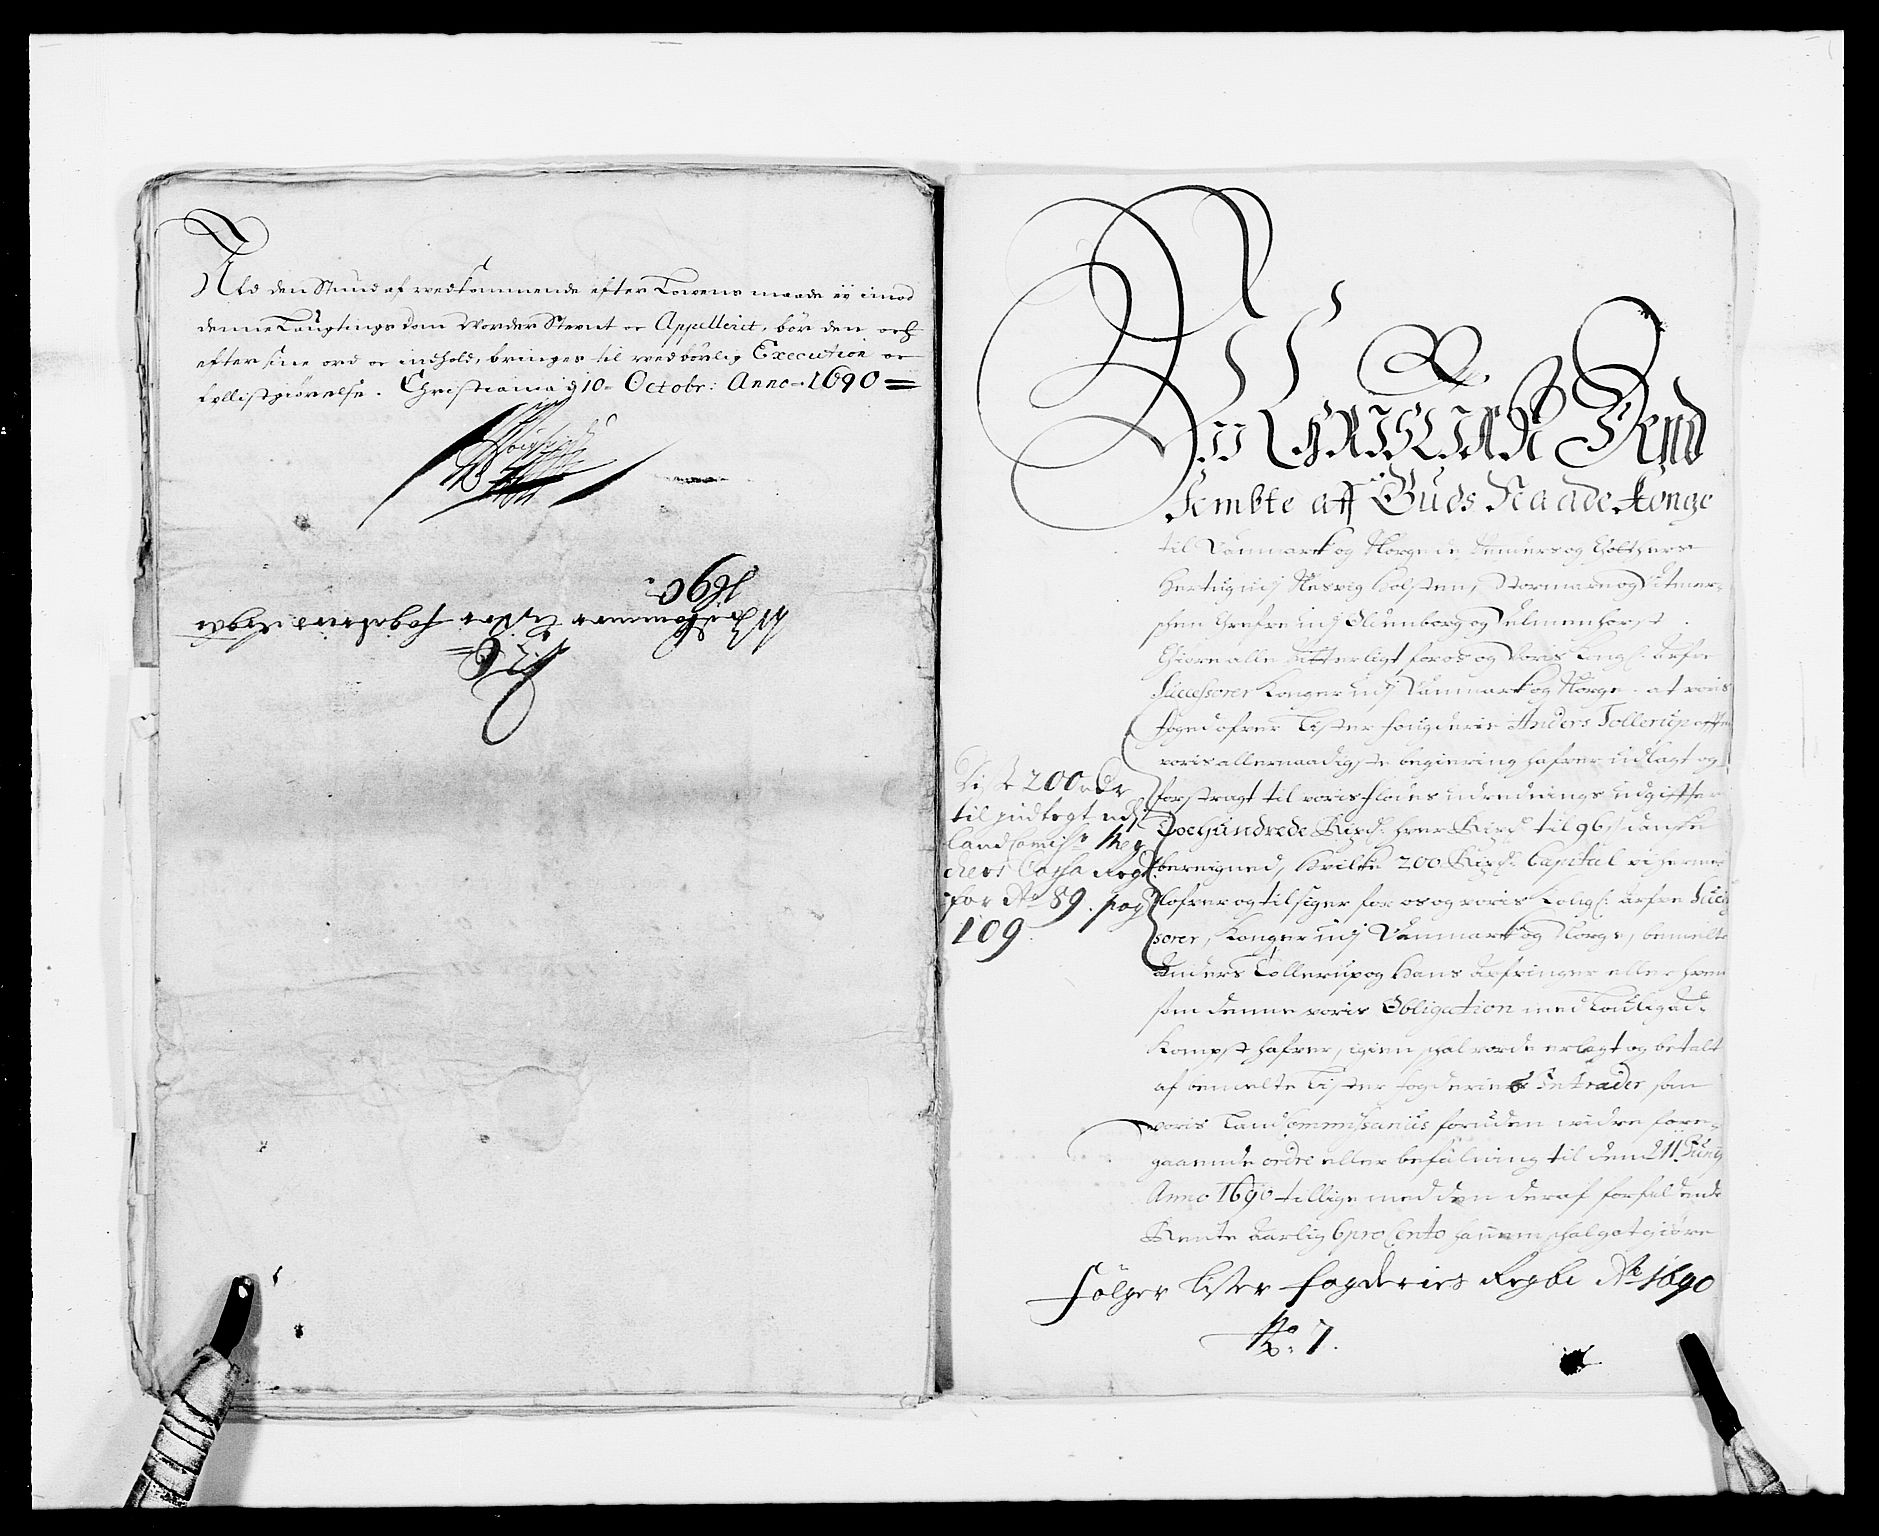 Als den Stund af wedkommende efter Lowens maade ey imod
denne Laugtings dom vorder Stevnt oc Appellerit, bør den och
efter sine ord oc indhold, bringes til wedbørlig Execution oc
fyllistgiørelse. Christiania d 10 Octobr: Anno 1690
No 6
fogderies Regbe
1690
Vii Christian Dend
Fembte aff Guds Naade Konge
til Danmark og Norge de Venders og Gothers
Hertug udj Slesvig Holsten, Stormarn og Ditmer-
schen Grefve udj Oldenborg og Delmenhorst
Giøre alle Vitterligt for os og Voris Kongl: Arfve
Successorer Konger udj Danmark og Norge, at voris
foged ofver Lister fougderie Anders Tollerup effter
voris allernaadigste begiering hafver udlagt og
forstragt til voris flodes udrednings udgiffter
Toehundrede Rixd: hver Rixd: til 96 s danske
beregned, hvilke 200 Rixd: Capital vi hermed
lofver og tilsiger for os og voris Kongl: Arfve Succes
sorer, Konger udj Danmark og Norge, bemelte
Anders Tollerup og Hans Arfvinger eller hvem
som denne voris Obligation med Lovlig ad-
komst hafver, igien schal vorde erlagt og betalt
af bemelte Lister fogderies Intrader som
voris Land Commissarius foruden widre fore-
gaaende ordre eller befalning til den 11 Juny
Anno 1690 tillige med den deraf forfaldende
Rente Aarlig 6 pro Cento hannem schal gotgiøre
Disse 200 rdr
til indtegt udj
Landcomiss:
Cassa Regsk:
for Ao 89. pag
109
følger Lister fogderies Regbe Ao 1690
No: 7.